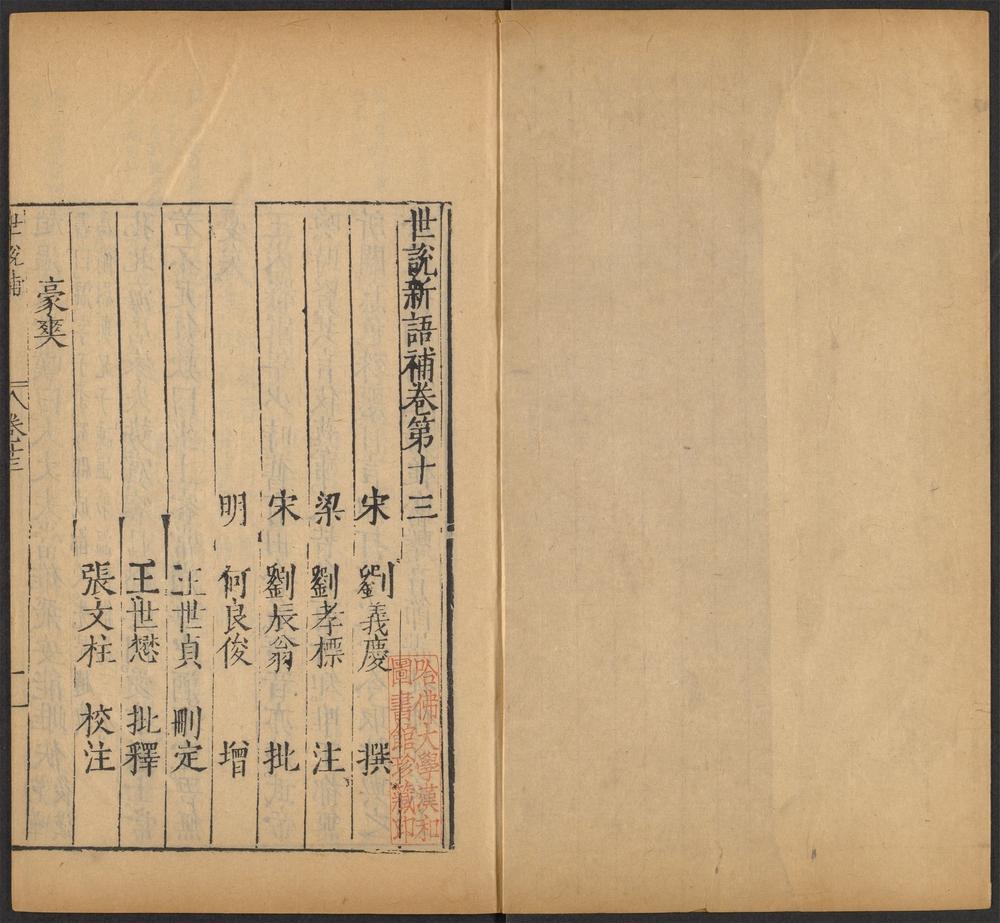 世説新語補卷第十三
宋 劉義慶 撰
梁 劉孝標 注
宋 劉辰翁 批
明 何良俊 增
王世貞 刪定
王世懋 批釋
張文柱 校注
豪爽
世說補 卷十三 一
哈佛大學漢和圖書館珍藏印